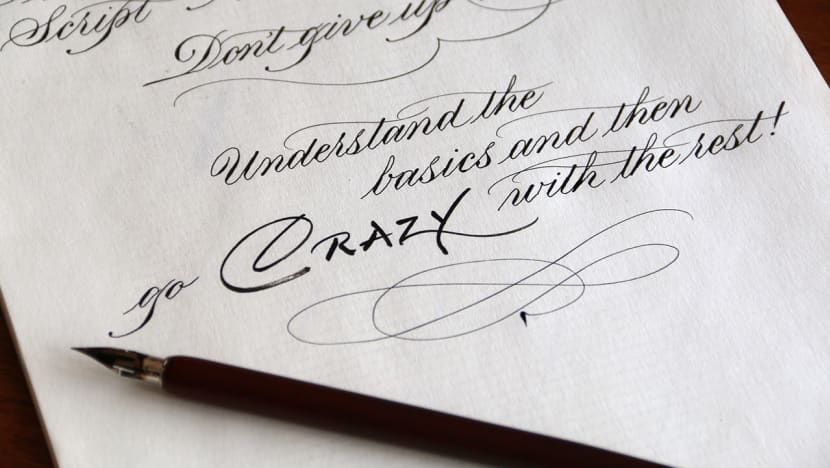 Script
Don't give up
Understand the
basics and then
go CRAZY with the rest!